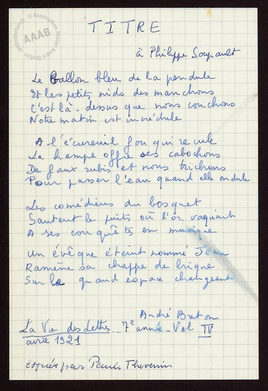 TITRE
à Philippe Soupault
Le Ballon bleu de la pendule
Et les petits nids des manchons
C'est là-dessus que nous couchons
Notre matin est incrédule
A l'écureuil fou qui recule
La hampe offre ses cabochons
De faux rubis et nous trichons
Pour passer l'eau quand elle ondule
Les comédiens du bosquet
Sautent le puits où l'or vaquait
A ses conquêts en musique
Un évêque éteint nommé Jean
Ramène sa chappe de brique
Sur le quand espace changeant
André Breton
La Vie des Lettres - 7e année - Vol IV
avril 1921
copiés par Paule Thévenin
AAAB